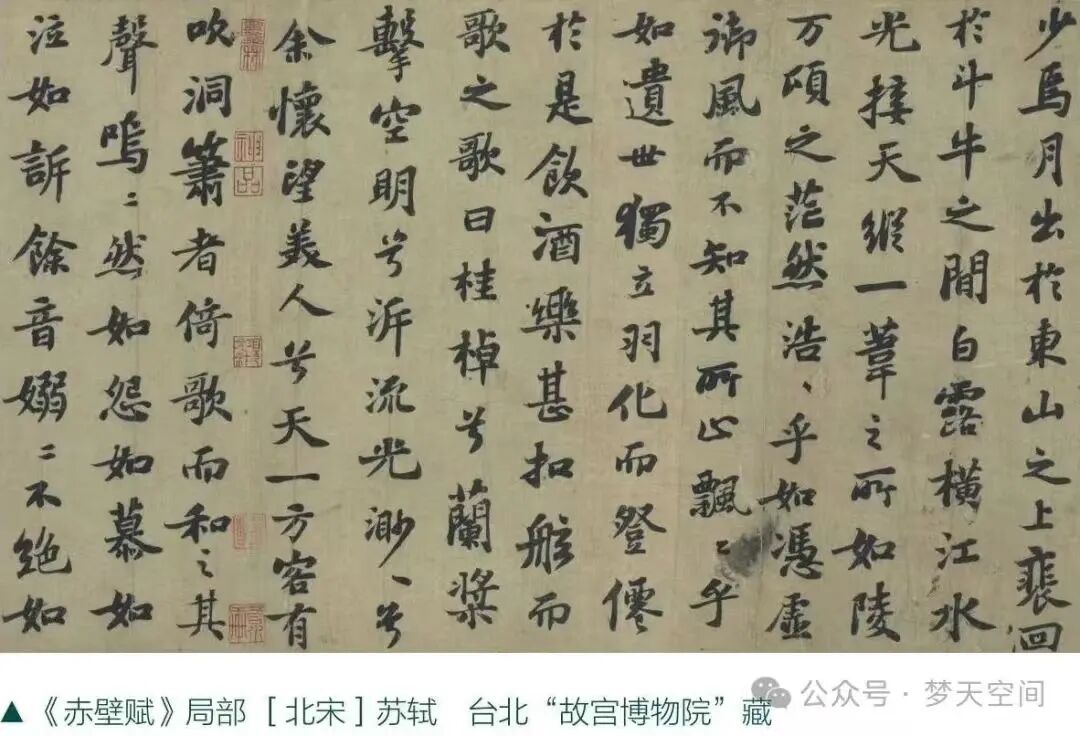 少焉月出於東山之上裴回
於斗牛之間白露橫江水
光接天縱一葦之所如陵
万頃之茫然浩、乎如馮虛
御風而不知其所止飄〻乎
如遺世獨立羽化而登僊
於是飲酒樂甚扣舷而
歌之歌曰桂棹兮蘭槳
擊空明兮泝流光渺、兮
余懷望美人兮天一方客有
吹洞簫者倚歌而和之其
聲嗚〻然如怨如慕如
泣如訴餘音嫋〻不絕如
神品
▲《赤壁赋》局部［北宋］苏轼 台北“故宫博物院”藏
公众号·梦天空间